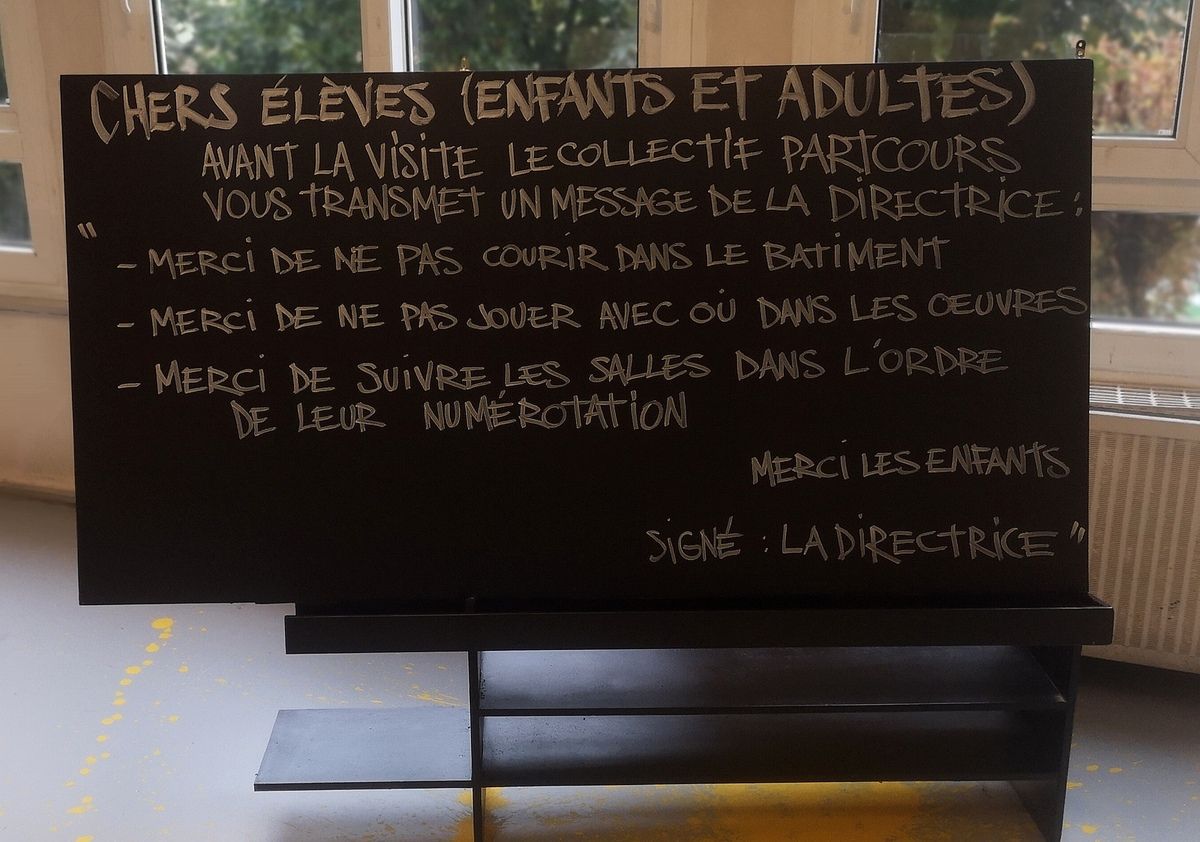 CHERS ÉLÈVES (ENFANTS ET ADULTES)
AVANT LA VISITE LE COLLECTIF PARTCOURS
VOUS TRANSMET UN MESSAGE DE LA DIRECTRICE :
" - MERCI DE NE PAS COURIR DANS LE BATIMENT
- MERCI DE NE PAS JOUER AVEC OÙ DANS LES OEUVRES
- MERCI DE SUIVRE LES SALLES DANS L'ORDRE
DE LEUR NUMÉROTATION
MERCI LES ENFANTS
SIGNÉ : LA DIRECTRICE "